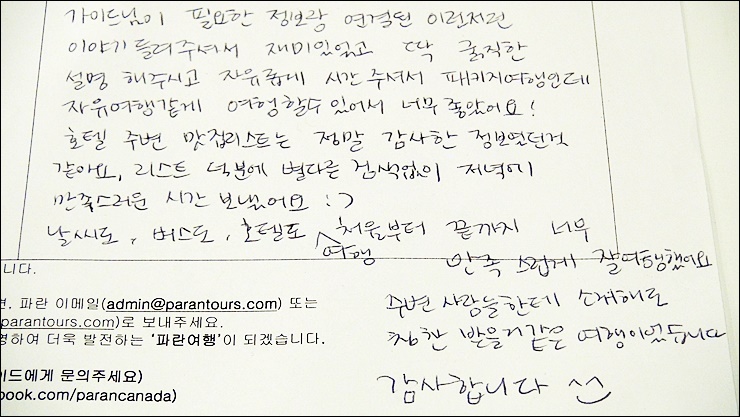 가이드님이 필요한 정보랑 연결된 이런저런
이야기 들려주셔서 재미있었고 딱 굵직한
설명 해주시고 자유롭게 시간 주셔서 패키지여행인데
자유여행같게 여행할수 있어서 너무 좋았어요!
호텔 주변 맛집리스트는 정말 감사한 정보였던것
같아요, 리스트 덕분에 별다른 검색없이 저녁에
만족스러운 시간 보냈어요 :)
날씨도, 버스도, 호텔도, 여행 처음부터 끝까지 너무
만족 스럽게 잘여행했어요
주변 사람들한테 소개해도
칭찬 받을거같은 여행이었습니다
감사합니다 ^^
니다.
면. 파란 이메일(admin@parantours.com) 또는
parantours.com)로 보내주세요.
영하여 더욱 발전하는 '파란여행'이 되겠습니다.
이드에게 문의주세요)
book.com/parancanada)